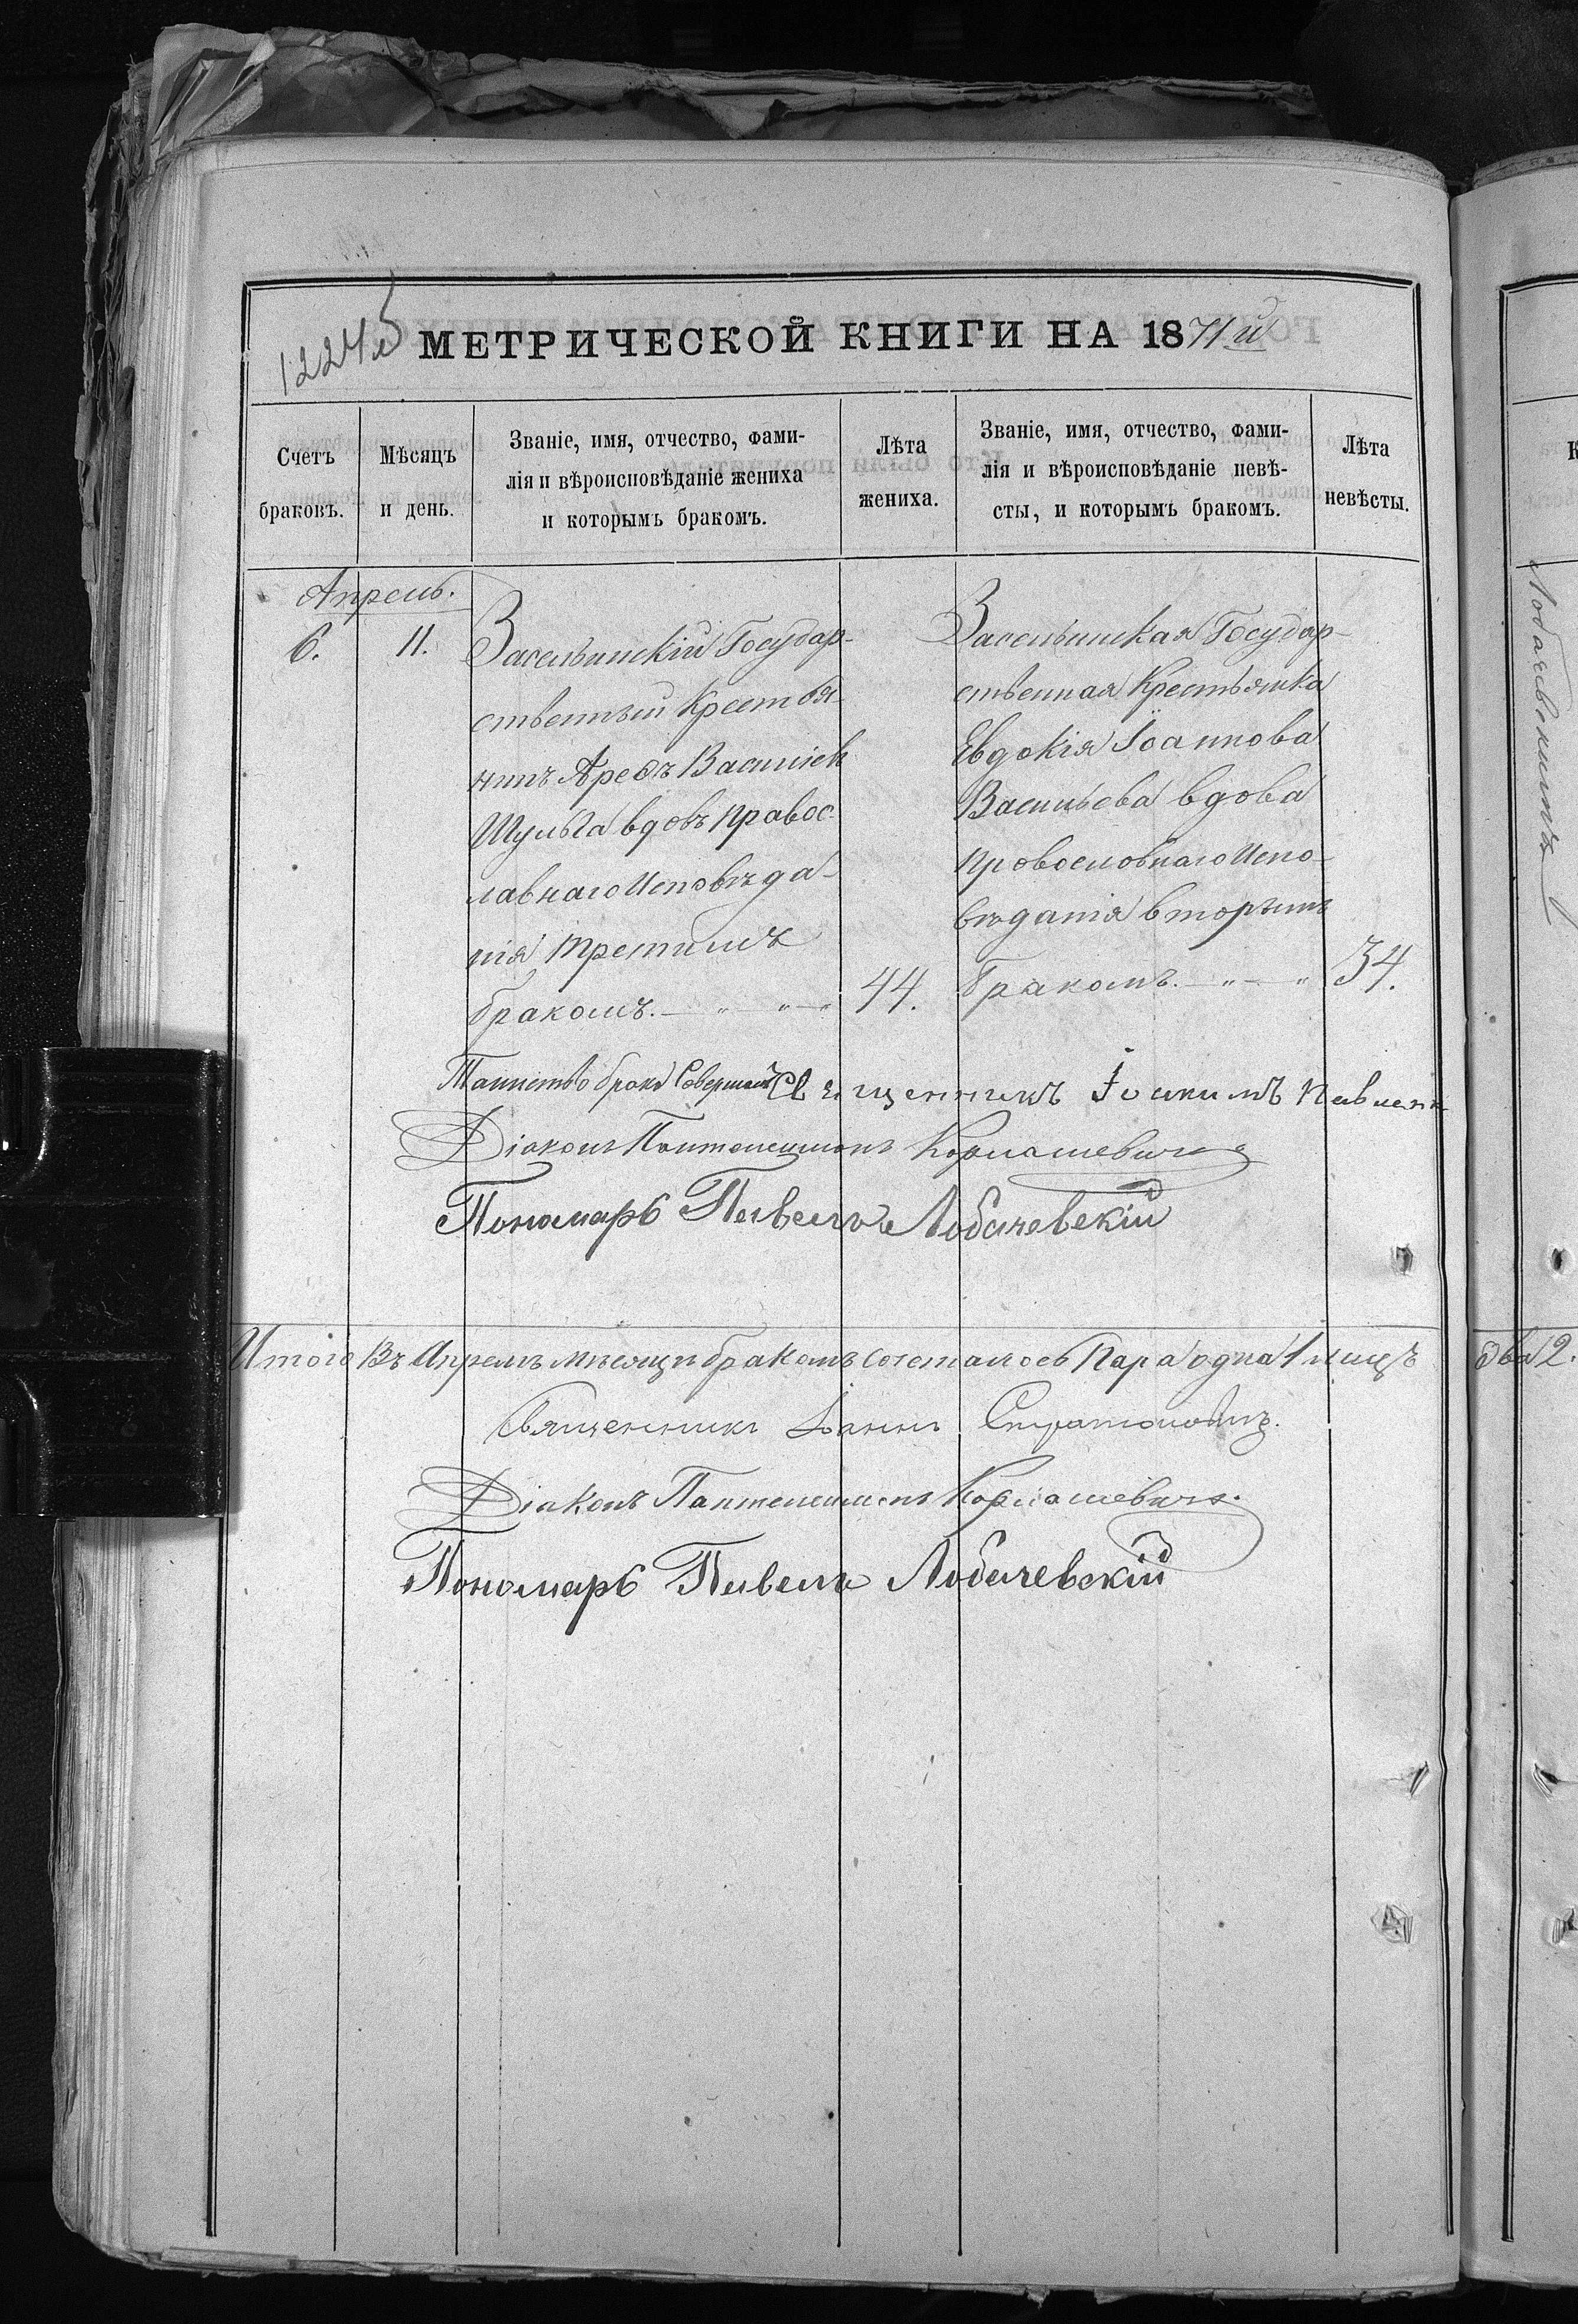 1224об
МЕТРИЧЕСКОЙ КНИГИ НА 1871й
Счетъ
браковъ.
Мѣсяцъ
и день.
Званіе, имя, отчество, фами-
лія и вѣроисповѣданіе жениха
и которымъ бракомъ.
Лѣта
жениха.
Званіе, имя, отчество, фами-
лія и вѣроисповѣданіе невѣ-
сты, и которымъ бракомъ.
Лѣта
невѣсты.
Апрель.
6.
11.
Засельинскій Государ-
ственный Крестья-
нинъ Василіев
Шульга вдовъ Правос-
лавнаго Исповѣда-
нія третимъ
бракомъ.
44.
Засельинская Государ-
ственная Крестьянка
Евдокія Іоаннова
Васильева вдова
Православнаго Испо-
вѣданія вторымъ
бракомъ.
34.
Таинство брака Совершалъ Священникъ Іоакимъ
Діаконъ Пантелеимонъ Кормашевичъ
Пономарь Павелъ Лобачевскій
Итого Въ Апрелѣ мѣсяцѣ бракомъ сочеталось Пара одна 1 лицъ
два 2.
Священникъ Іоаннъ
Діаконъ Пантелеимонъ Кормашевичъ.
Пономарь Павелъ Лобачевскій